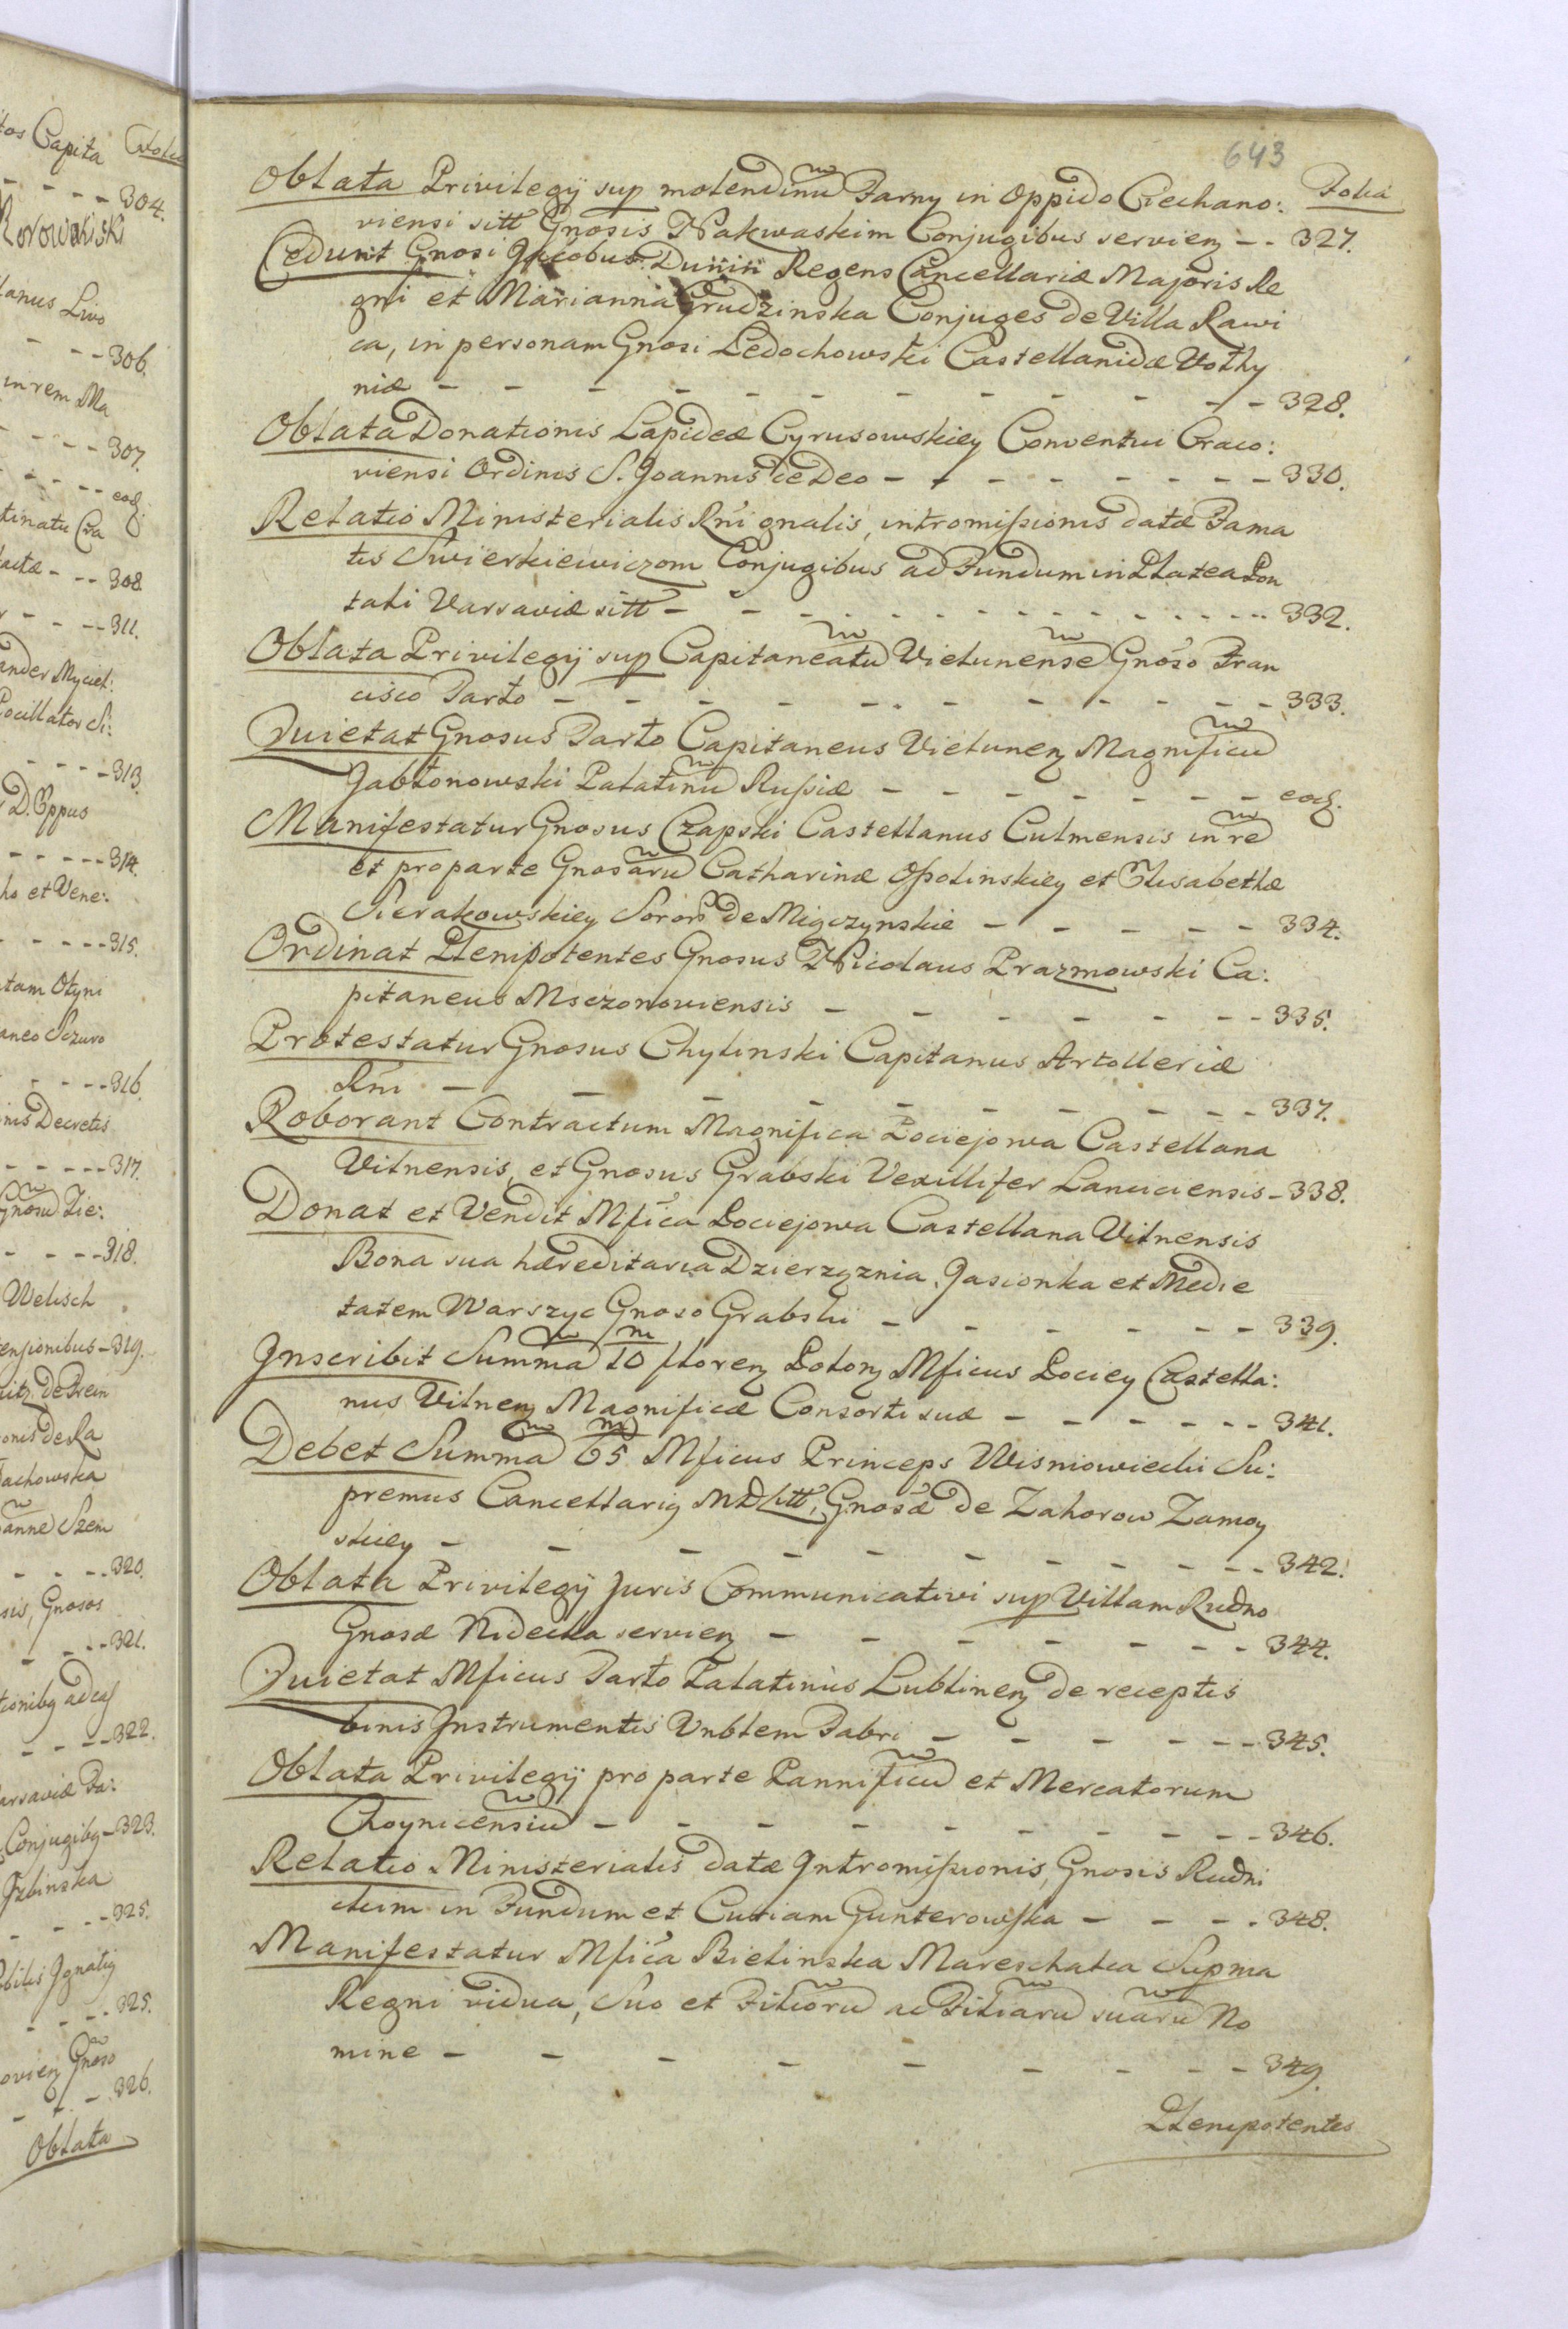 tos Capita Folia
- - - - 304.
Korowaiski
lanus Livo
- - - 306.
in rem Ma
- - - - 307.
- - - - eod.
tinatu Cra
- - 308.
- - - 311.
ander Myciel:
Pocillator Si:
- - - - 313.
D. Eppus
- - - - - 314.
ho et Vene:
- - - - - 315.
tam Otyni
aneo Sczuro
- - - - 316.
nis Decretis
- - - - - 317.
Gnosũ Zie:
- - - - 318.
Welisch
ensionibus - 319.
De Prein
onis de Ra
tachowska
anne Szem
- - - - 320.
sis, Gnosos
- - - - 321.
tionibq ad eas
- - - - 322.
arsaviæ Fa:
Conjugibq - 323.
Izbinska
- - - 325.
obilis Ignatij
- - - - 325.
ovienz Gnoso
- - - 326.
Oblata
643
Folia
Oblata Privilegÿ sup molendinũ Farny in Oppido Ciechano:
viensi sitt Gnosis Nakwaskim Conjugibus servienz - - 327.
Cedunt Gnosi Jacobus Dunin Regens Cancellariæ Majoris Re
gni et Marianna Grudzinska Conjuges de Villa Rawi
ca, in personam Gnosi Ledochowski Castellanidæ Volhy
niæ - - - - - - - - - - - 328.
Oblata Donationis Lapideæ Cyrusowskiey Conventui Craco:
viensi Ordinis S. Joannis de Deo - - - - - - - - 330.
Relatio Ministerialis Rni gnalis, intromissionis datæ Fama
tis Swierkiewiczom Conjugibus ad Fundum in Platea Lon
tali Varsaviæ sitt - - - - - - - - - - - 332.
Oblata Privilegÿ sup Capitaneatũ Vielunensẽ Gnoso Fran
cisco Tarło - - - - - - - - - - - 333.
Quietat Gnosus Tarło Capitaneus Vielunenz Magnificũ
Jabłonowski Palatinũ Russiæ - - - - - - - - eod.
Manifestatur Gnosus Czapski Castellanus Culmensis in rẽ
et pro parte Gnosarũ Catharinæ Ossolinskiey et Elisabethæ
Sierakowskiey Soror de Miączynskie - - - - - 334.
Ordinat Plenipotentes Gnosus Nicolaus Prazmowski Ca:
pitaneus Msczonoviensis - - - - - - - - 335.
Protestatur Gnosus Chylinski Capitanus Artolleriæ
Rni - - - - - - - - - - 337.
Roborant Contractum Magnifica Pociejowa Castellana
Vilnensis, et Gnosus Grabski Vexillifer Lanciciensis - 338.
Donat et Vendit Mfica Pociejowa Castellana Vilnensis
Bona sua hæreditaria Dzierzążnia, Jasionka et Medie
tatem Warszyc Gnoso Grabski - - - - - - - 339.
Inscribit Summã 10 m florenz Polonz Mficus Pociey Castella:
nus Vilnenz Magnificæ Consorti suæ - - - - - - 341.
Debet Summã 65 m Mficus Princeps Wisniowiecki Su:
premus Cancellariq MD Litt, Gnosæ de Zahorow Zamoy
skiey - - - - - - - - - - 342.
Oblata Privilegÿ Juris Communicativi sup Villam Rudno
Gnosæ Nidecka servienz - - - - - - - 344.
Quietat Mficus Tarło Palatinus Lublinenz de receptis
binis Instrumentis Vnblem Fabri - - - - - - 345.
Oblata Privilegÿ pro parte Pannificũ et Mercatorum
Choynicensiũ - - - - - - - - - - 346.
Relatio Ministerialis datæ Intromissionis, Gnosis Rudni
ckim in Fundum et Curiam Gunterowska - - - - 348.
Manifestatur Mfica Bielinska Mareschalca Supma
Regni vidua, Suo et Filiorũ ac Filiarũ suarũ No
mine - - - - - - - - 349.
Plenipotentes